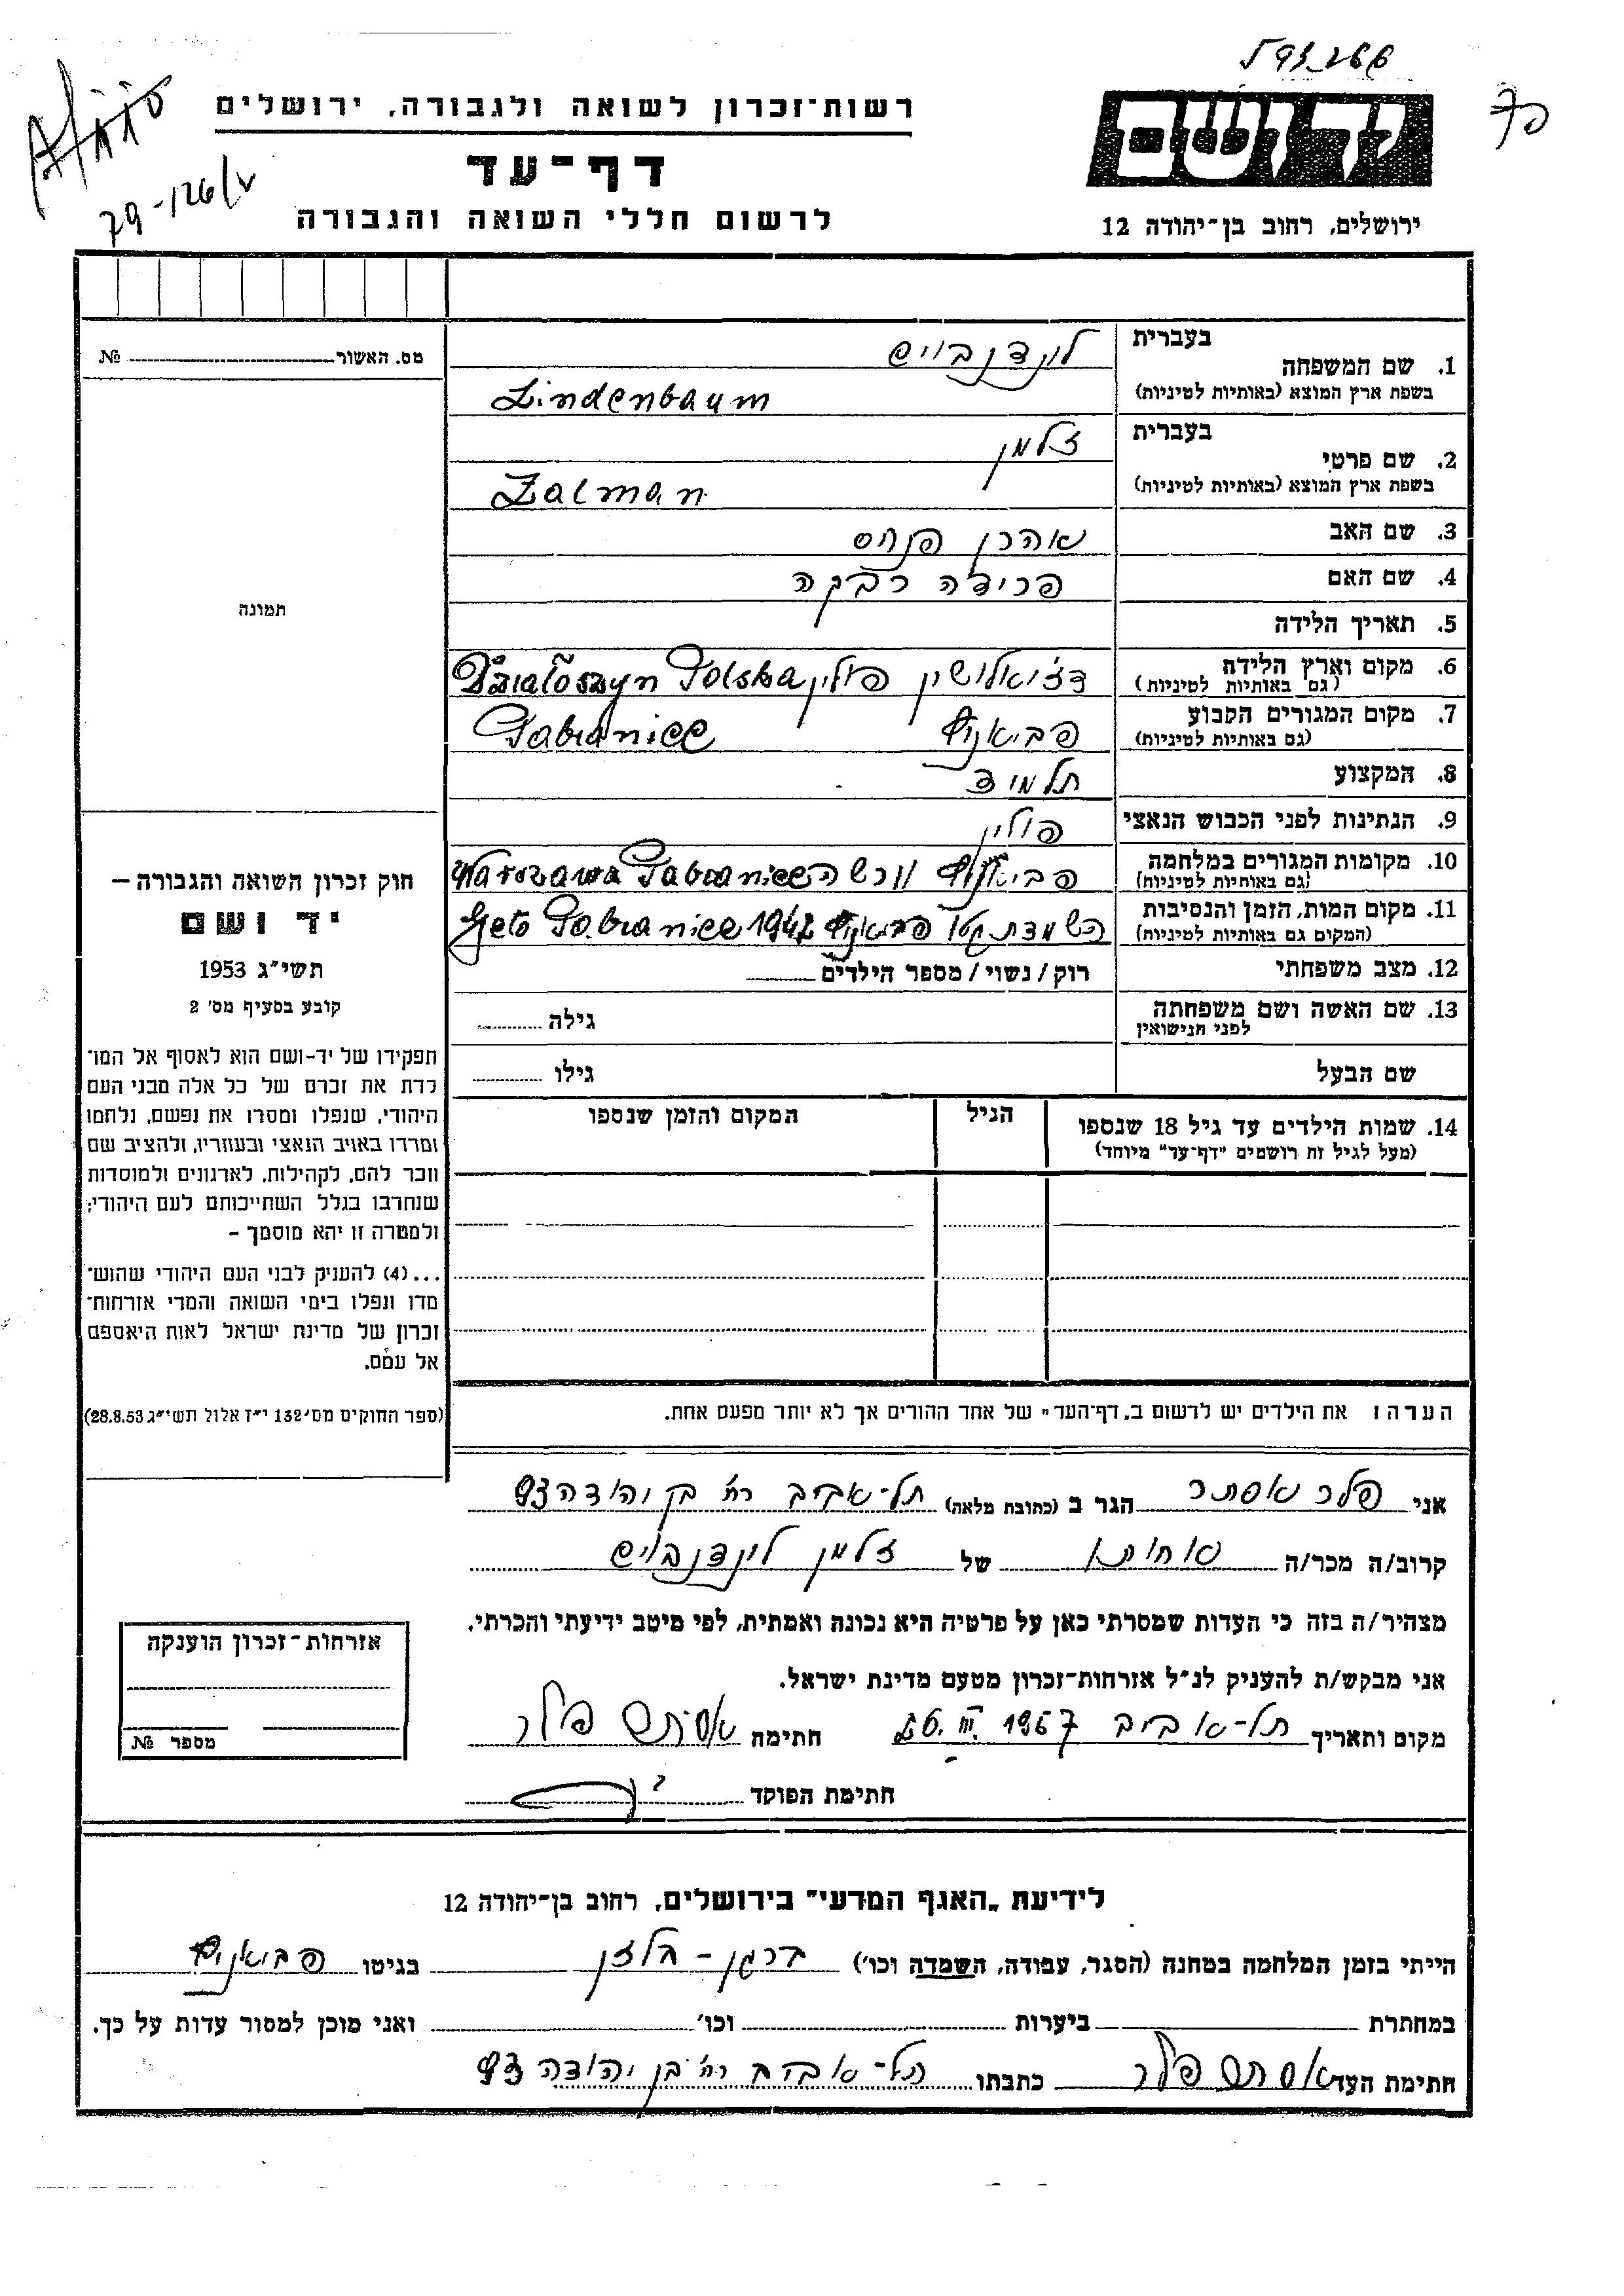 רשות־זכרון לשואה ולגבורה, ירושלים
79-126/
דף־עד
לרשום חללי השואה והגבורה
יד ושם
ירושלים, רחוב בן־יהודה 12
מס. האשור № 
תמונה
1. שם המשפחה בעברית לינדנבוים
(בשפת ארץ המוצא (באותיות לטיניות Lindenbaum
2. שם פרטי בעברית זלמן
(בשפת ארץ המוצא (באותיות לטיניות Zalman
3. שם האב אהרן פנחס
4. שם האם פרידה רבקה
5. תאריך הלידה
6. מקום וארץ הלידה (גם באותיות לטיניות) דז'יאלושין פולין Działoszyn Polska
7. מקום המגורים הקבוע (גם באותיות לטיניות) פביאניץ Pabianice
8. המקצוע תלמיד
9. הנתינות לפני הכבוש הנאצי פולין
10. מקומות המגורים במלחמה (גם באותיות לטיניות) פביאניץ וורשה Warszawa Pabianice
11. מקום המות, הזמן והנסיבות (המקום גם באותיות לטיניות) השמדת גטו פביאניץ 1942 Geto Pabianice
12. מצב משפחתי רוק / נשוי / מספר הילדים
13. שם האשה ושם משפחתה לפני הנישואין גילה
שם הבעל גילו
14. שמות הילדים עד גיל 18 שנספו הגיל המקום והזמן שנספו
(מעל לגיל זה רושמים "דף־עד" מיוחד)
הערה: את הילדים יש לרשום ב„דף־העד" של אחד ההורים אך לא יותר מפעם אחת.
חוק זכרון השואה והגבורה —
יד ושם
תשי"ג 1953
קובע בסעיף מס' 2
תפקידו של יד-ושם הוא לאסוף אל המו־
לדת את זכרם של כל אלה מבני העם
היהודי, שנפלו ומסרו את נפשם, נלחמו
ומרדו באויב הנאצי ובעוזריו, ולהציב שם
וזכר להם, לקהילות, לארגונים ולמוסדות
שנחרבו בגלל השתייכותם לעם היהודי;
ולמטרה זו יהא מוסמך –
...(4) להעניק לבני העם היהודי שהוש־
מדו ונפלו בימי השואה והמרי אזרחות־
זכרון של מדינת ישראל לאות היאספם
אל עמם.
(ספר החוקים מס' 132 י"ז אלול תשי"ג 28.8.53)
אני פלר אסתר הגר ב (כתובת מלאה) תל-אביב רח' בן יהודה 93
קרוב/ה מכר/ה אחותו של זלמן לינדנבוים
מצהיר/ה בזה כי העדות שמסרתי כאן על פרטיה היא נכונה ואמתית, לפי מיטב ידיעתי והכרתי.
אני מבקש/ת להעניק לנ"ל אזרחות־זכרון מטעם מדינת ישראל.
מקום ותאריך תל-אביב 26. III. 1967 חתימה אסתר פלר
חתימת הפוקד
אזרחות־זכרון הוענקה
מספר №
לידיעת „האגף המדעי" בירושלים, רחוב בן־יהודה 12
הייתי בזמן המלחמה במחנה (הסגר, עבודה, השמדה וכו') ברגן-בלזן בגיטו פביאניץ
במחתרת ביערות וכו' ואני מוכן למסור עדות על כך.
חתימת העד אסתר פלר כתבתו תל-אביב רח' בן יהודה 93